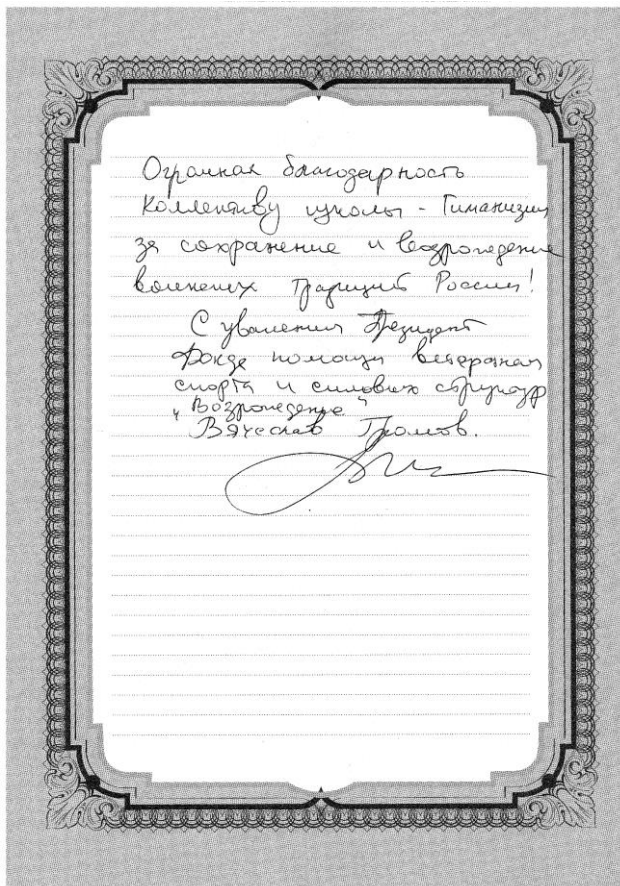 Огромная благодарность
Коллективу школы - Гиманизии
за сохранение и возрождение
военных Традиций России!
С уважением Президент
Фонда помощи ветеранам
спорта и силовых структур
"Возрождение"
Вячеслав Громов.